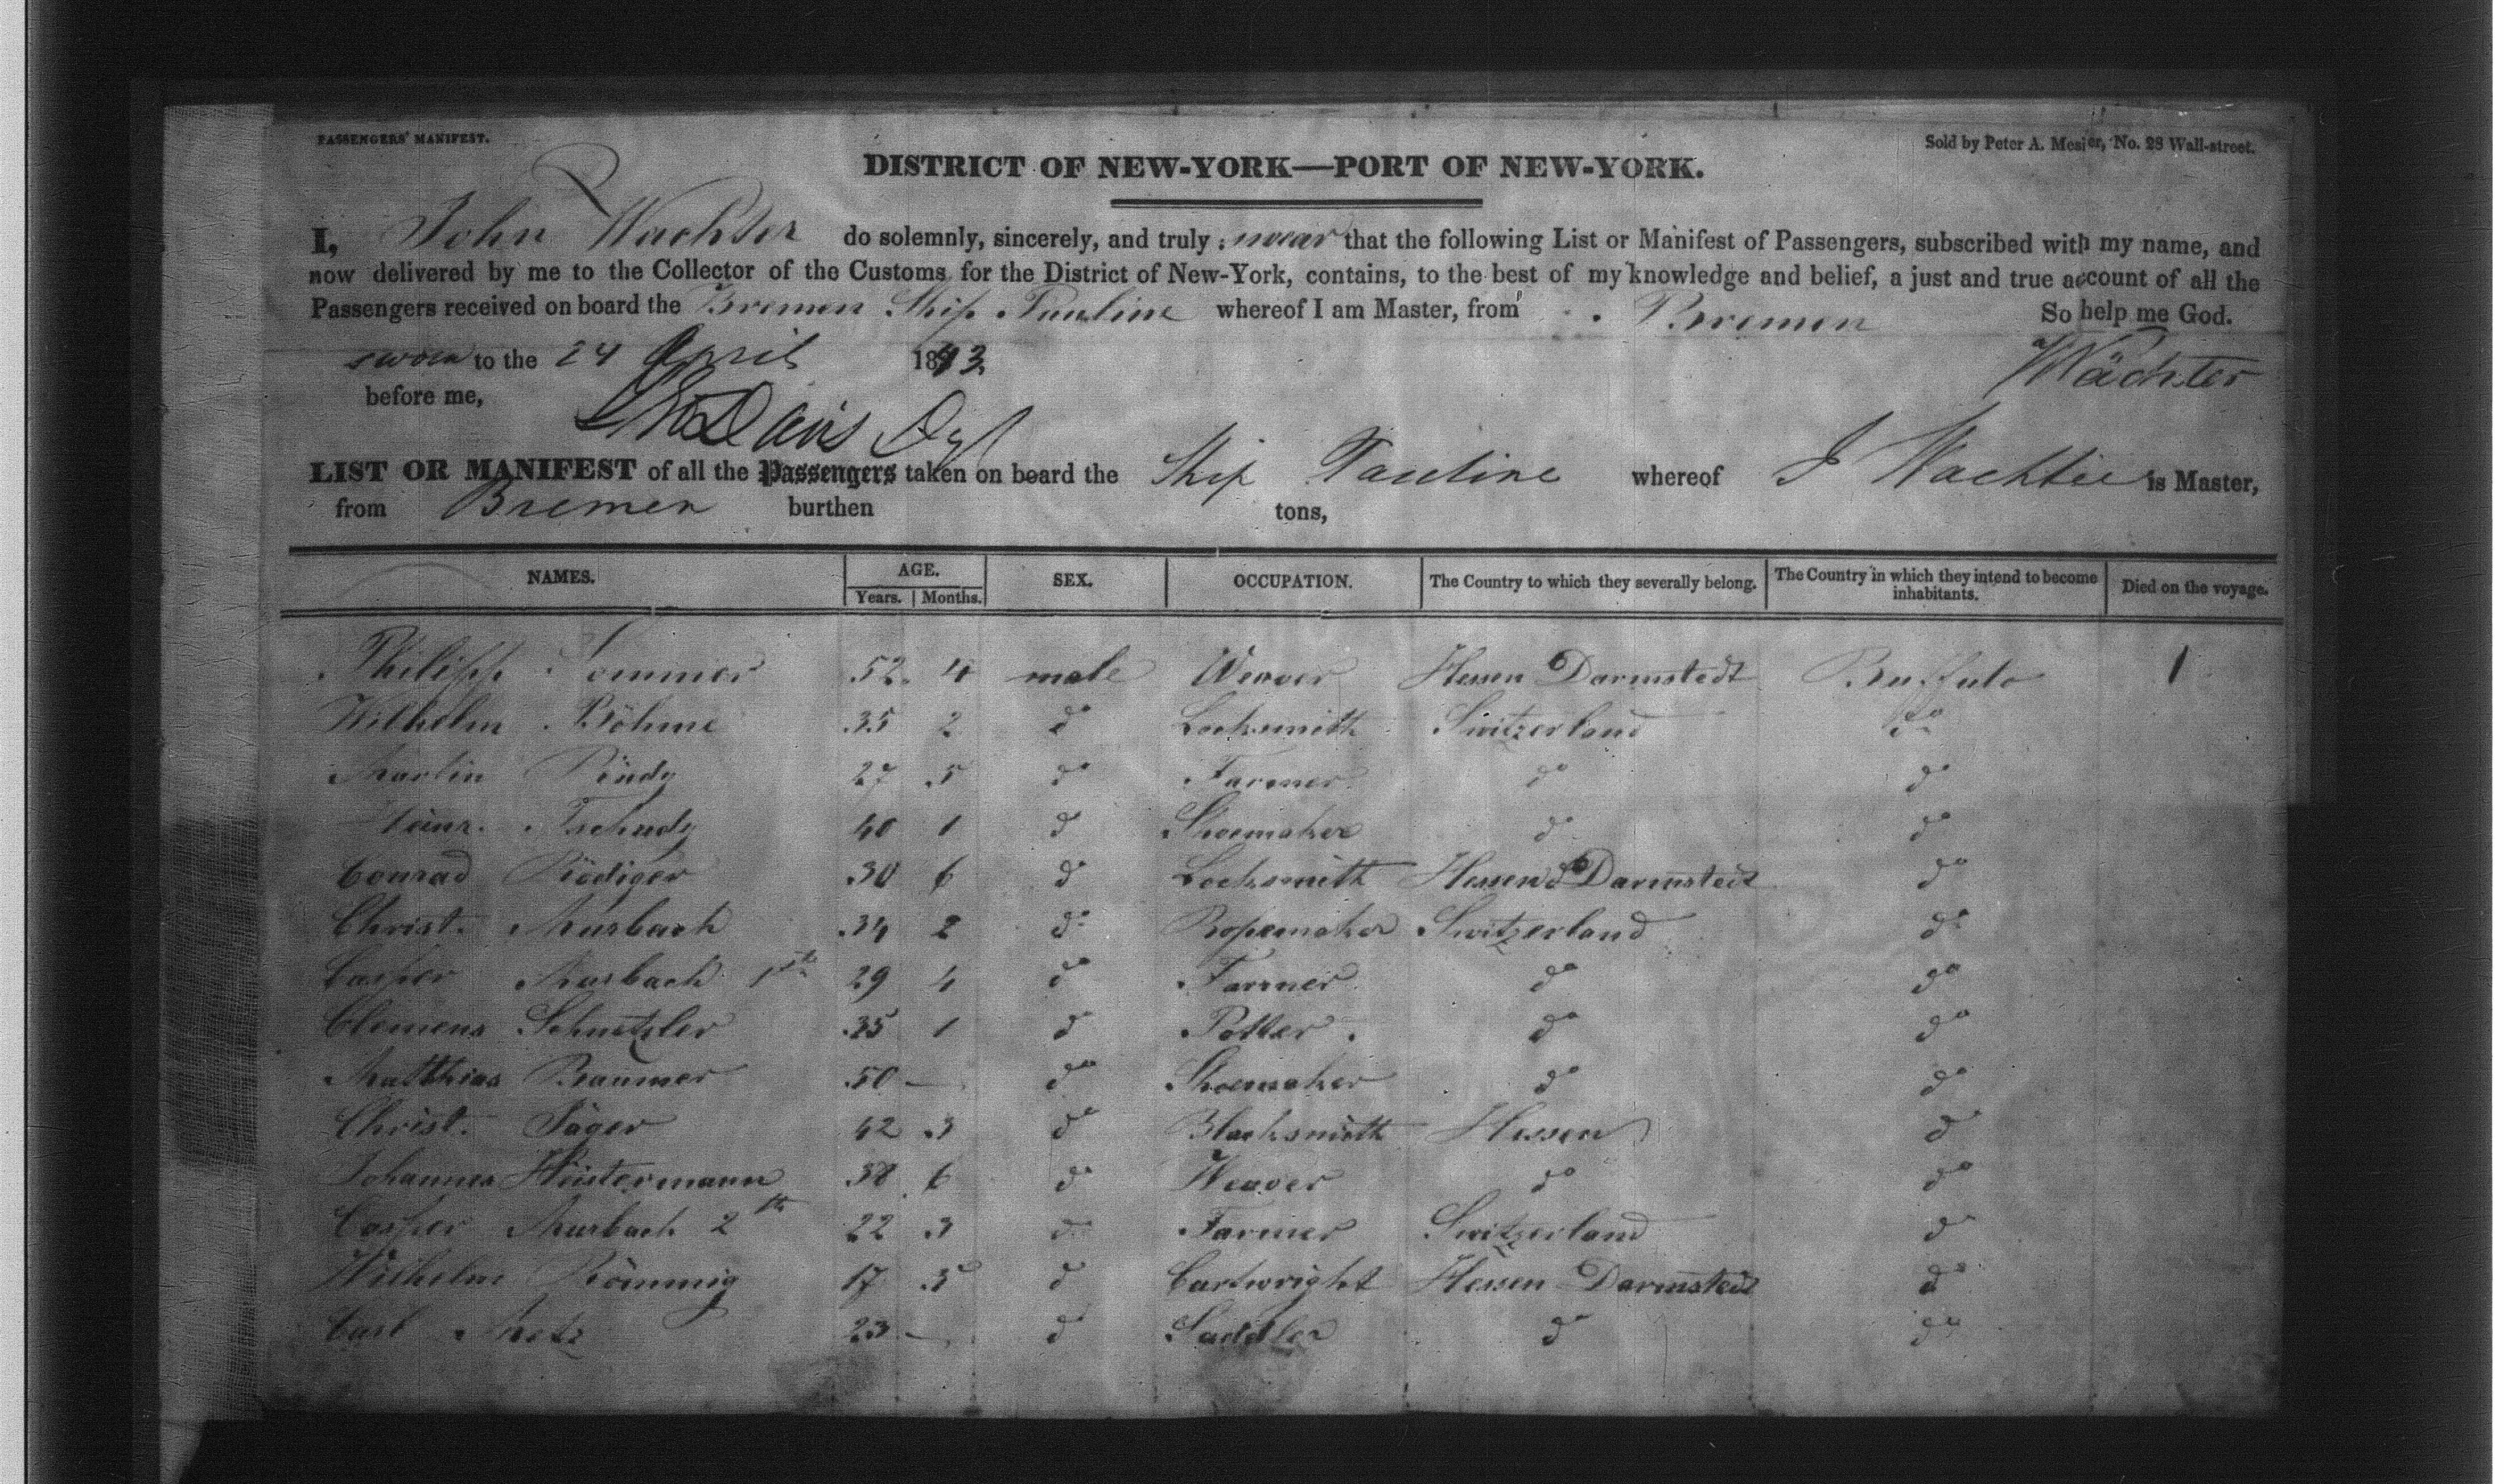 PASSENGERS' MANIFEST.
Sold by Peter A. Mesier, No. 28 Wall-street.
DISTRICT OF NEW-YORK—PORT OF NEW-YORK.
I, John Wachter do solemnly, sincerely, and truly swear that the following List or Manifest of Passengers, subscribed with my name, and
now delivered by me to the Collector of the Customs for the District of New-York, contains, to the best of my knowledge and belief, a just and true account of all the
Passengers received on board the Bremen Ship Pauline whereof I am Master, from Bremen So help me God.
sworn to the 24 April 1843. Wächter
before me,
Davis
LIST OR MANIFEST of all the Passengers taken on board the Ship Pauline whereof J Wachter is Master,
from Bremen burthen tons,
NAMES. AGE. Years. Months. SEX. OCCUPATION. The Country to which they severally belong. The Country in which they intend to become inhabitants. Died on the voyage.
Philipp Sommer 52. 4 male Weaver Hessen Darmstedt Buffalo 1
Wilhelm Böhme 35 2 do Locksmith Switzerland do
Martin 27 5 do Farmer do do
Heinr. Tschudy 40 1 do Shoemaker do do
Conrad Rödiger 30 6 do Locksmith Hessen Darmstedt do
Christ. Murbach 34 2 do Ropemaker Switzerland do
Casper Murbach 1th 29 4 do Farmer do do
Clemens Schnetzler 35 1 do Potter. do do
Matthias Braumer 50 — do Shoemaker do do
Christ. Jäger 42 3 do Blacksmith Hessen do
Johannes Heistermann 38 6 do Weaver do do
Casper Murbach 2th 22 3 do Farmer Switzerland do
Wilhelm Römmig 17 5 do Cartwright Hessen Darmstedt do
Carl Metz 23 — do Saddler do do